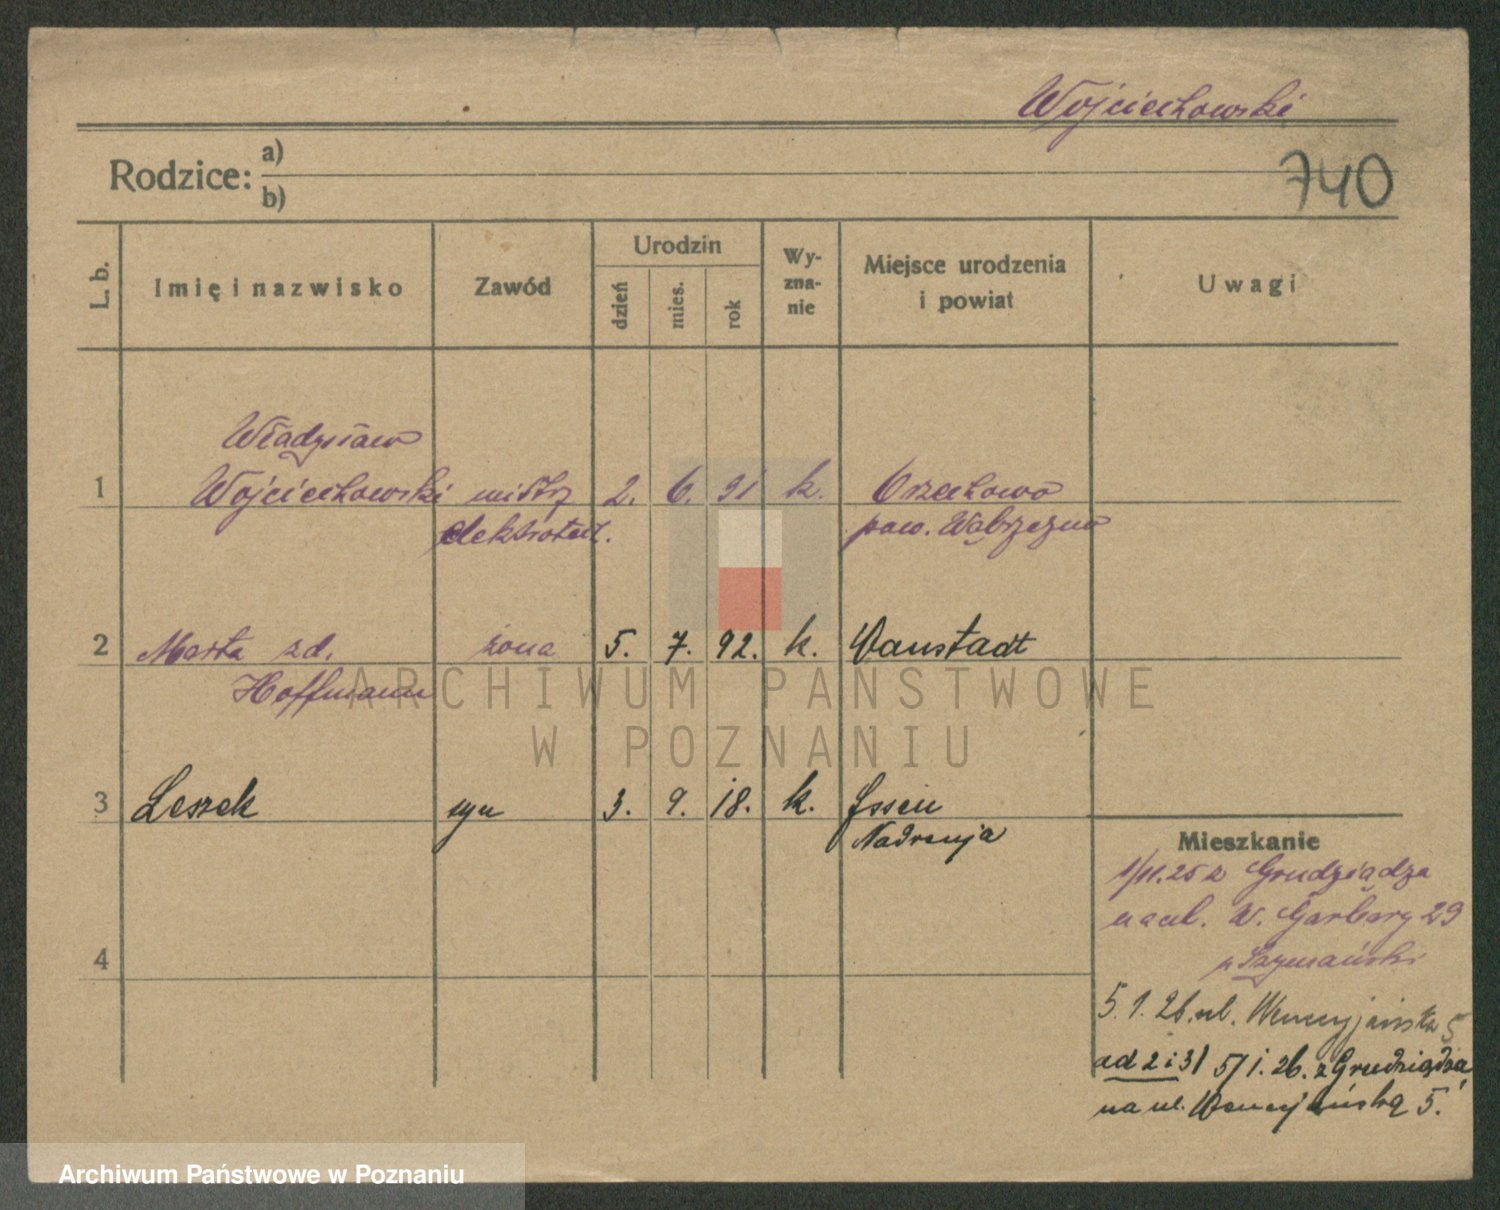 Wojciechowski
740
Rodzice: a)
b)
L. b. Imię i nazwisko Zawód Urodzin dzień mies. rok Wy-zna-nie Miejsce urodzenia i powiat Uwagi
Władysław
1 Wojciechowski mistrz 2. 6. 91 k. Orzechowo
elektrotech. pow. Wąbrzeźno
2 Marta zd. żona 5. 7. 92. k. Vanstadt
Hoffmann
ARCHIWUM PAŃSTWOWE
W POZNANIU
3 Leszek syn 3. 9. 18. k. Essen
Nadrenja
Mieszkanie
1/11.25 z Grudziądza
na ul. W. Garbary 29
p. Szymański
4
5. 1. 26. ul. Wenecjańska 5
ad 2 i 3/ 5/1.26. z Grudziądza
na ul. Wenecjańską 5.
Archiwum Państwowe w Poznaniu